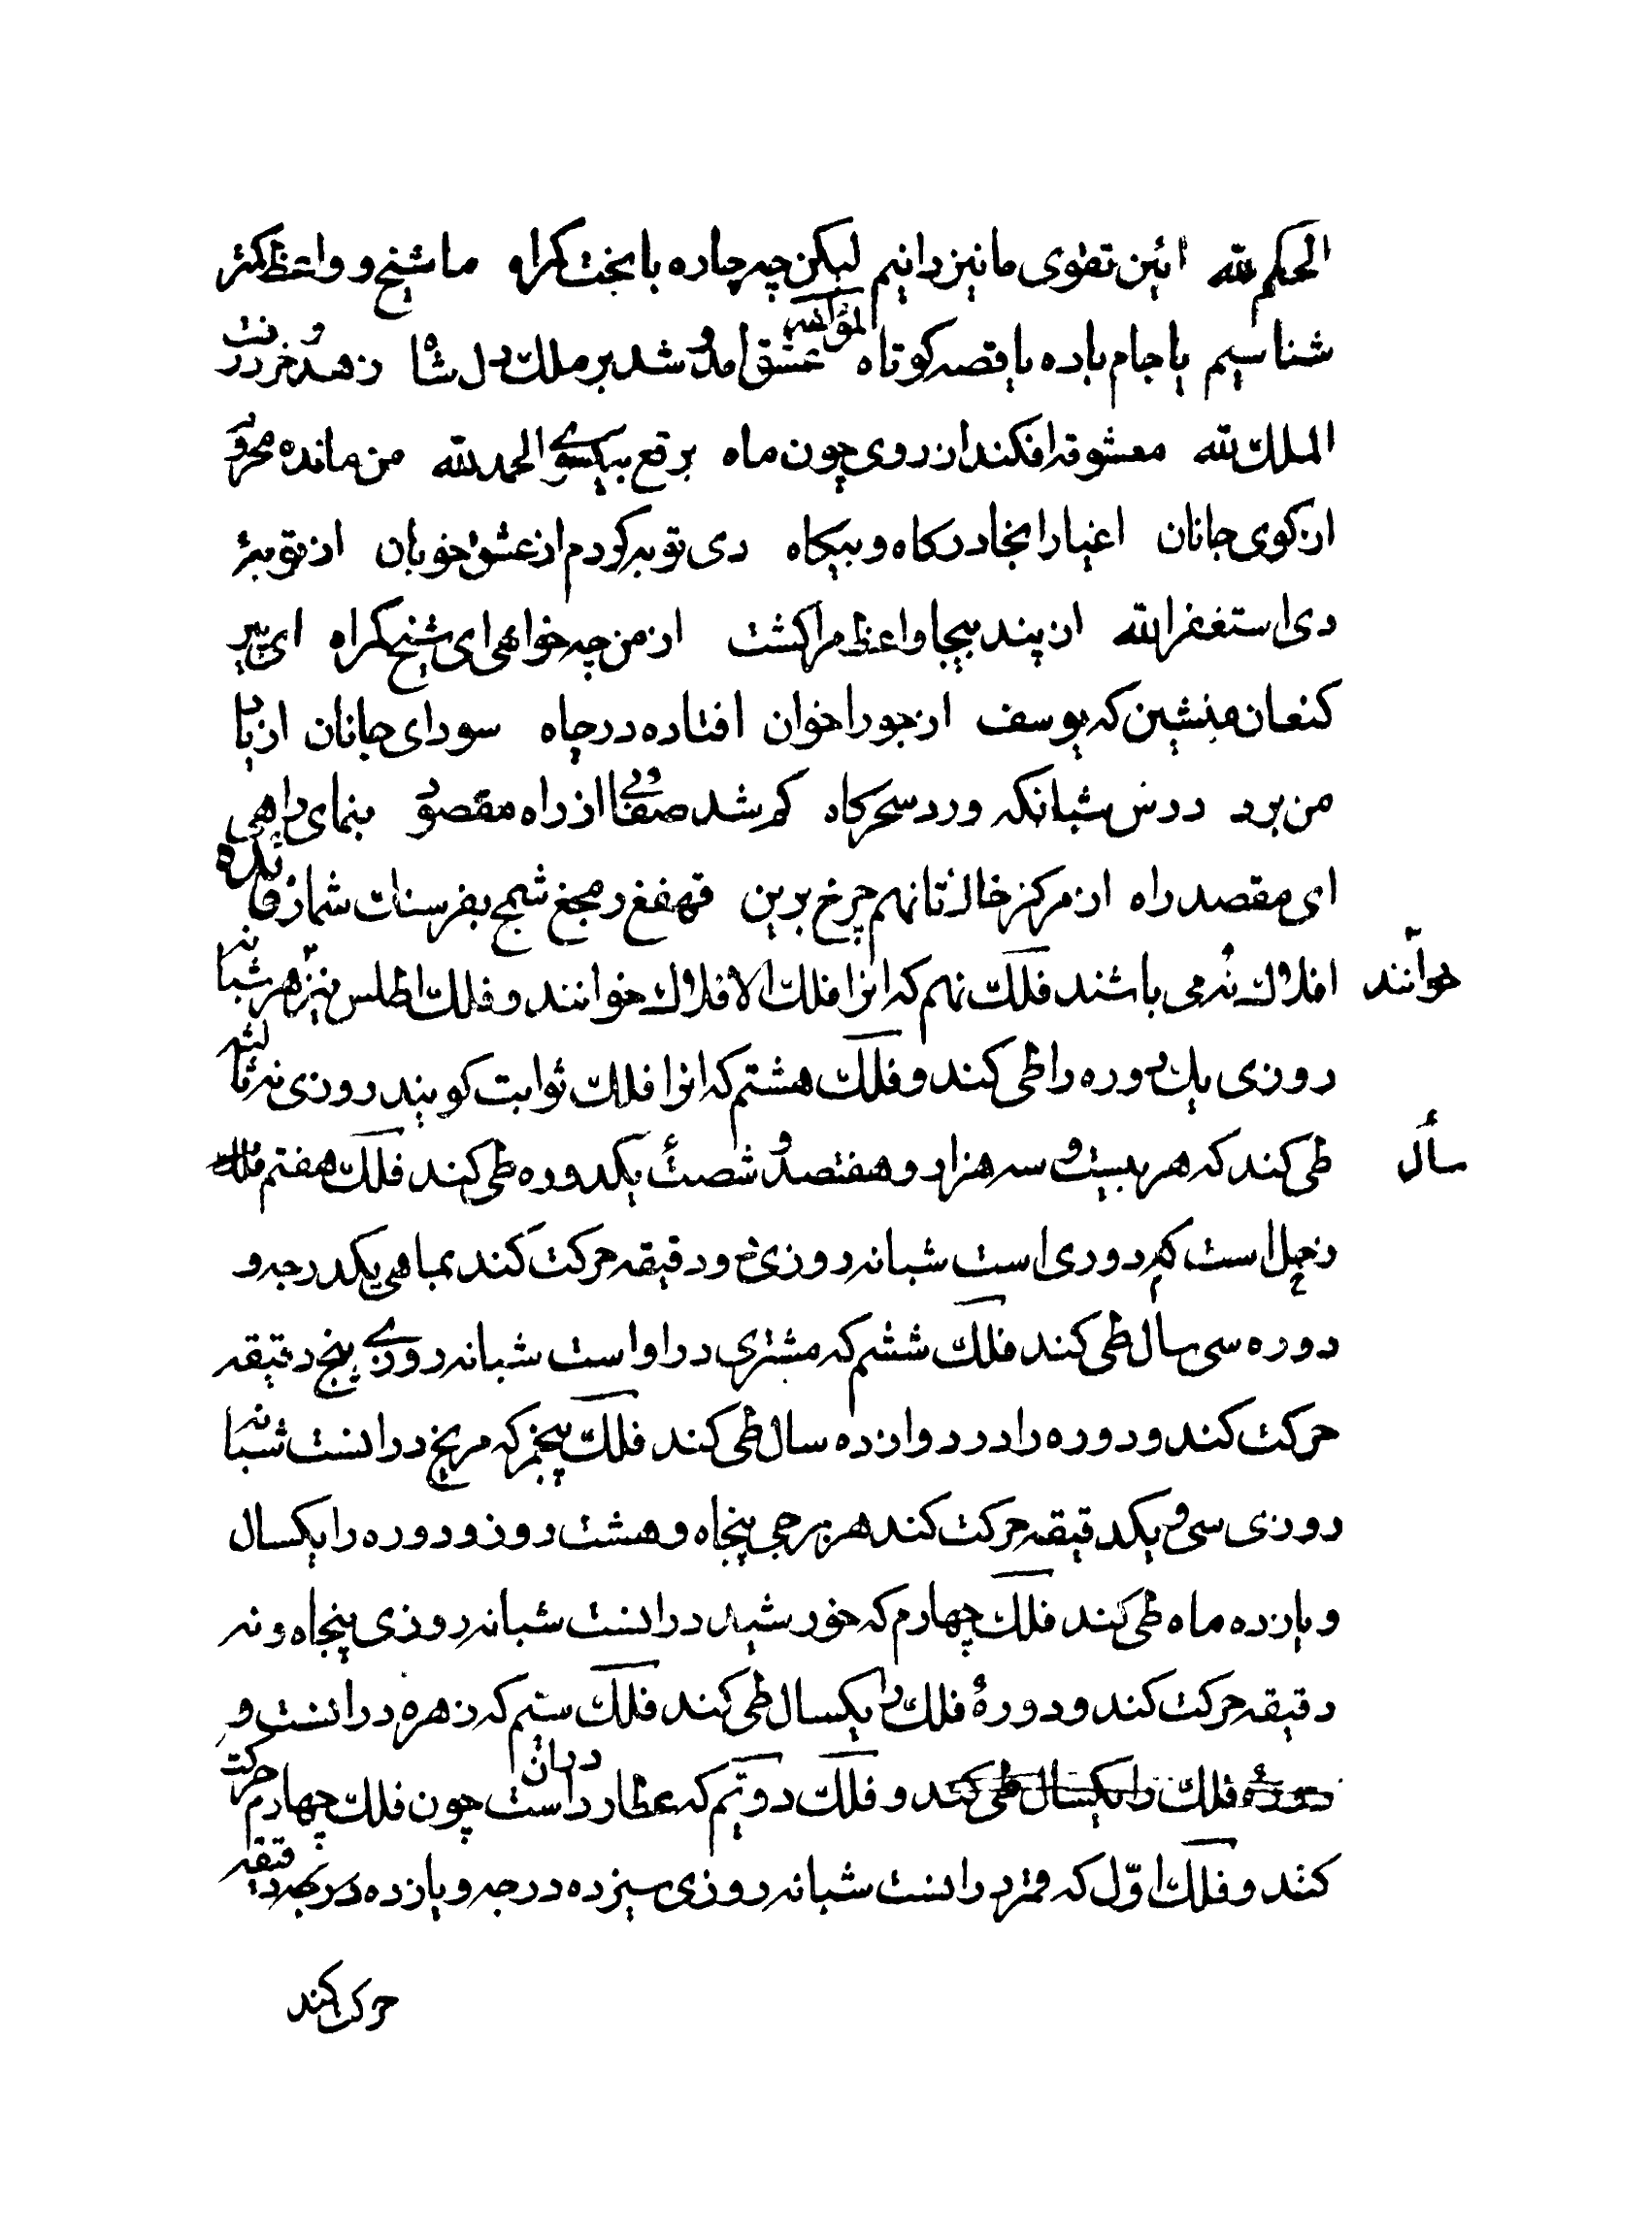 الحکم لله ائین تقوی ما نیز دانیم لیکن چه چاره با بخت کمراه ما شیخ و واعظ کمتر
شناسیم یا جام باده یا قصه کوتاه لمؤلفه عشق امد و شد بر ملک دل شاه زهد و خرد رفت
الملک لله معشوقه افکند از روی چون ماه برقع بیکسوی الحمد لله من مانده محروم
از کوی جانان اغیار انجا در کاه و بیکاه دی توبه کردم از عشق خوبان از توبهٔ
دی استغفر الله از پند بیجا واعظ مرا کشت از من چه خواهی ای شیخ کمراه ای پیر
کنعان منشین که یوسف از جور اخوان افتاده در چاه سودای جانان از یاد
من برد درس شبانکه ورد سحرکاه کم شد صفائی از راه مقصود بنمای راهی
ای مقصد راه از مرکز خاک تا نهم چرخ برین فهفغ رمجغ شمج بفرسنات شمار فائده
افلاک نه می باشند فلک نهم که انرا فلک الافلاک خوانند و فلک اطلس نیز خوانند هر شبانه
روزی یک دوره را طی کند و فلک هشتم که انرا فلک ثوابت کویند روزی نه ثالثه
طی کند که هر بیست و سه هزار و هفتصد و شصت سال یکدوره طی کند فلک هفتم فلک
زحل است که دوری است شبانه روزی دو دقیقه حرکت کند بماهی یکدرجه و
دوره سی سال طی کند فلک ششم که مشتری در او است شبانه روزی پنج دقیقه
حرکت کند و دوره را در دوازده سال طی کند فلک پنجم که مریخ در انست شبانه
روزی سی و یکدقیقه حرکت کند هر برجی پنجاه و هشت روز و دوره را یکسال
و یازده ماه طی کند فلک چهارم که خورشید در انست شبانه روزی پنجاه و نه
دقیقه حرکت کند و دورهٔ فلک را یکسال طی کند فلک سیم که زهره در انست و
دورهٔ فلک را یکسال طی کند و فلک دویم که عطارد در ان است چون فلک چهارم حرکت
کند و فلک اوّل که قمر در انست شبانه روزی سیزده درجه و یازده دقیقه
حرکت کند